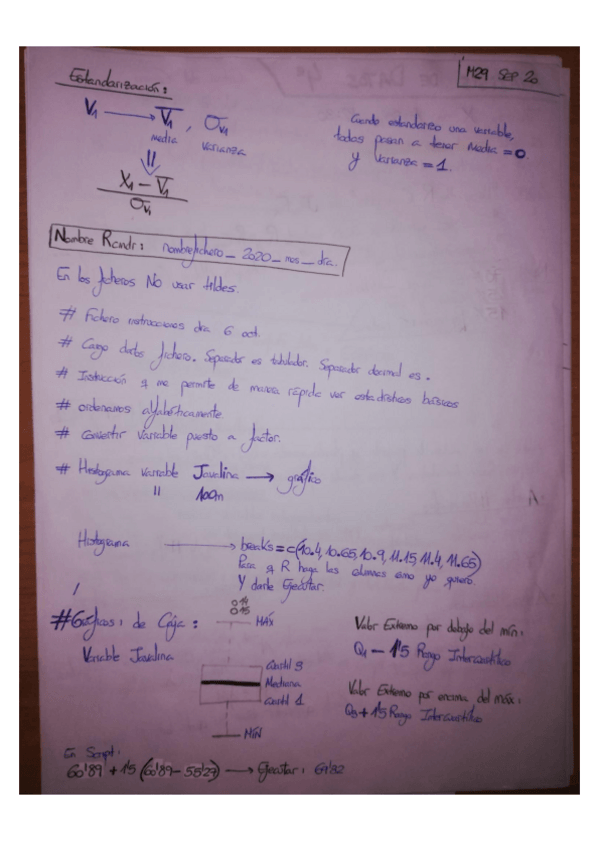 Estandarización:
M29 Sep 20
V₁ → V̅₁, σv₁
media varianza
||
X₁ - V̅₁
σv₁
Cuando estandarizo una variable,
todas pasan a tener Media = 0
y Varianza = 1.
Nombre Rcmdr: nombrefichero_2020_mes_dia.
En los ficheros No usar tildes.
# Fichero instrucciones dia 6 oct.
# Cargo datos fichero. Separador es tabulador. Separador decimal es .
# Instrucción q me permite de manera rápida ver estadísticos básicos
# ordenamos alfabéticamente
# Convertir variable puesto a factor.
# Histograma variable Javalina → gráfico
" 100m
Histograma → breaks = c(10.4, 10.65, 10.9, 11.15, 11.4, 11.65)
Para q R haga las columnas como yo quiero.
Y darle Ejecutar.
# Gráficos: de Caja:
Variable Javalina
14
15
MÁX
Cuartil 3
Mediana
Cuartil 1
MÍN
Valor Extremo por debajo del mín:
Q₁ - 1'5 Rango Intercuartílico
Valor Extremo por encima del máx:
Q₃ + 1'5 Rango Intercuartílico
En Script:
60'89 + 1'5 (60'89 - 55'29) → Ejecutar: 69'82